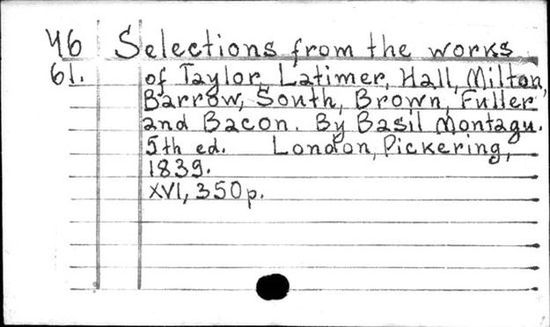 46 Selections from the works
61. of Taylor, Latimer, Hall, Milton,
Barrow, South, Brown, Fuller
and Bacon. By Basil Montagu.
5th ed. London, Pickering,
1839.
XVI, 350p.